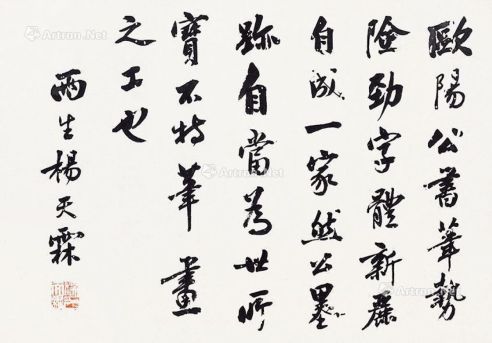 歐陽公書筆勢
險勁字體新麗
自成一家然公墨
跡自當為世所
寶不特筆畫
之工也
雨生楊天霖
Artron.Net
Artron.Net
Artron.Net